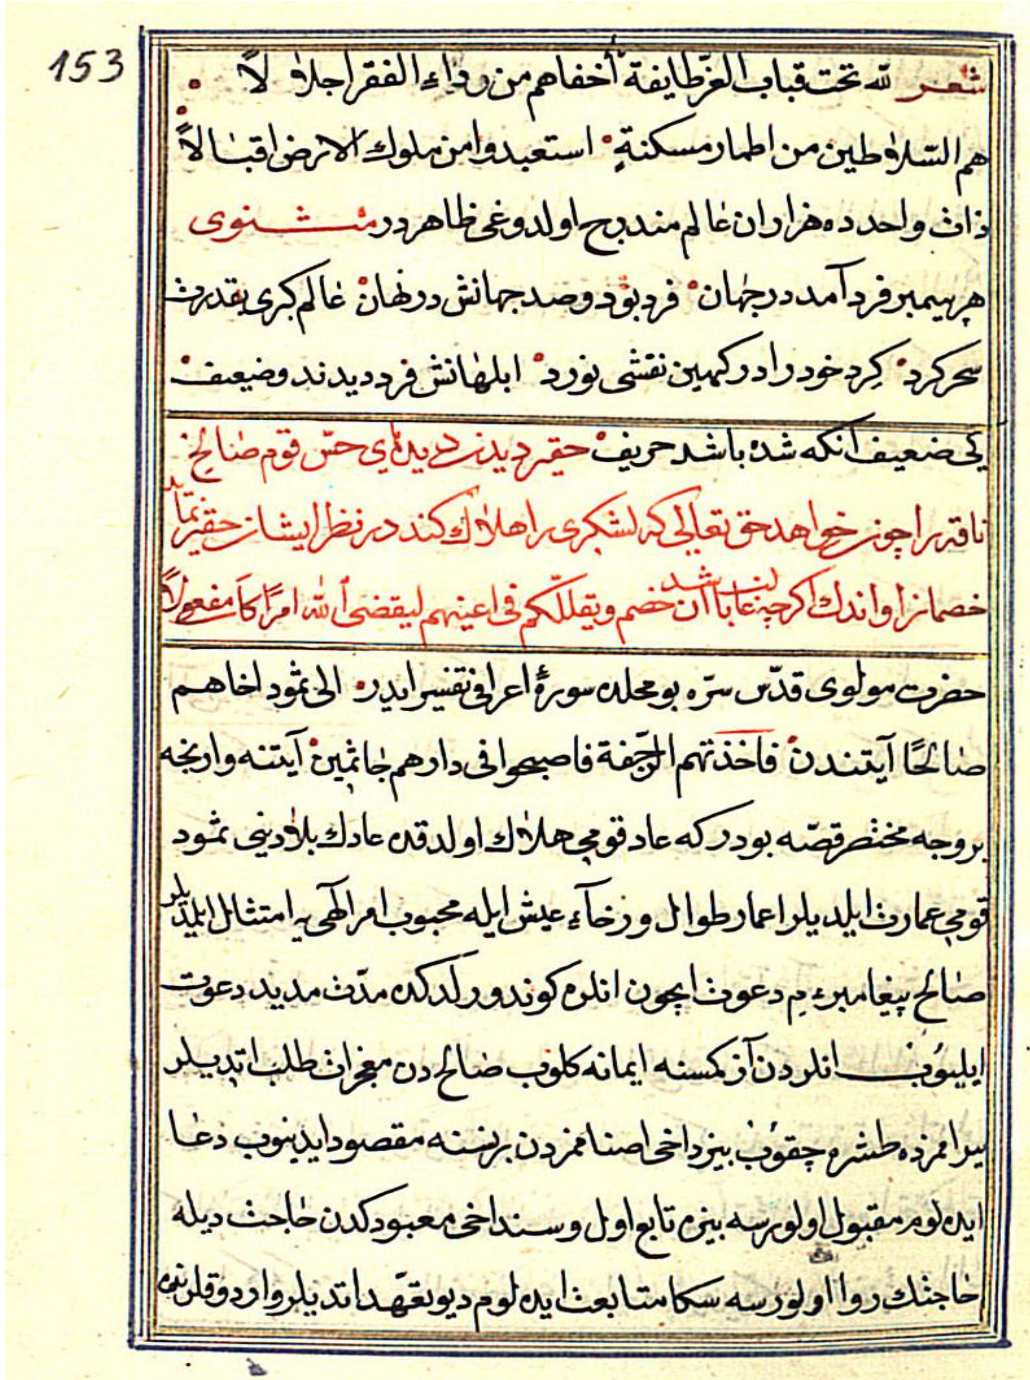 153
شعر لله تحت قباب العزّ طایفة أخفاهم من رداء الفقر اجلالاً
هم السّلاطین من اطمار مسكنةٍ استعبدوا من ملوك الارض اقبالاً
ذات واحدده هزاران عالم مندرج اولدوغی ظاهردر مثنوی
هر پیمبر فرد آمد در جهان فرد بود و صد جهانش در نهان عالم كبری بقدرت
سحر كرد كرد خود را در كهین نقشی نورد ابلهانش فرد دیدند و ضعیف
كی ضعیف آنكه شده باشد حریف حقیر دیدن دیدهای حسّ قوم صالح
ناقه را چون خواهد حق تعالی كه لشكری را هلاك كند در نظر ایشان حقیر نماید
خصمانرا و اندك اكرچه غالب باشد آن خصم ویقلّلكم فی اعینهم لیقضی الله امرًا كان مفعولاً
حضرت مولوی قدّس سرّه بو محلده سورۀ اعرافی تفسیر ایدر الی ثمود اخاهم
صالحًا آیتندن فاخذتهم الرّجفة فاصبحوا فی دارهم جاثمین آیتنه وارنجه
بر وجه مختصر قصّه بودر كه عاد قومی هلاك اولدقده عادك بلادینی ثمود
قومی عمارت ایلدیلر اعمار طوال و رخآء عیش ایله محبوب امر الهی یه امتثال ایلدیلر
صالح پیغامبری م دعوت ایچون انلره كوندوردكده مدّت مدید دعوت
ایلیوب انلردن آز كمسنه ایمانه كلوب صالح دن معجزات طلب اتدیلر
بیرامزده طشره چقوب بیز داخی اصنامزدن بر نسنه مقصود ایدینوب دعا
ایده لوم مقبول اولورسه بیزه تابع اول و سن داخی معبودكدن حاجت دیله
حاجتك روا اولورسه سكا متابعت ایده لوم دیو تعهّد اتدیلر واردوقلرنده